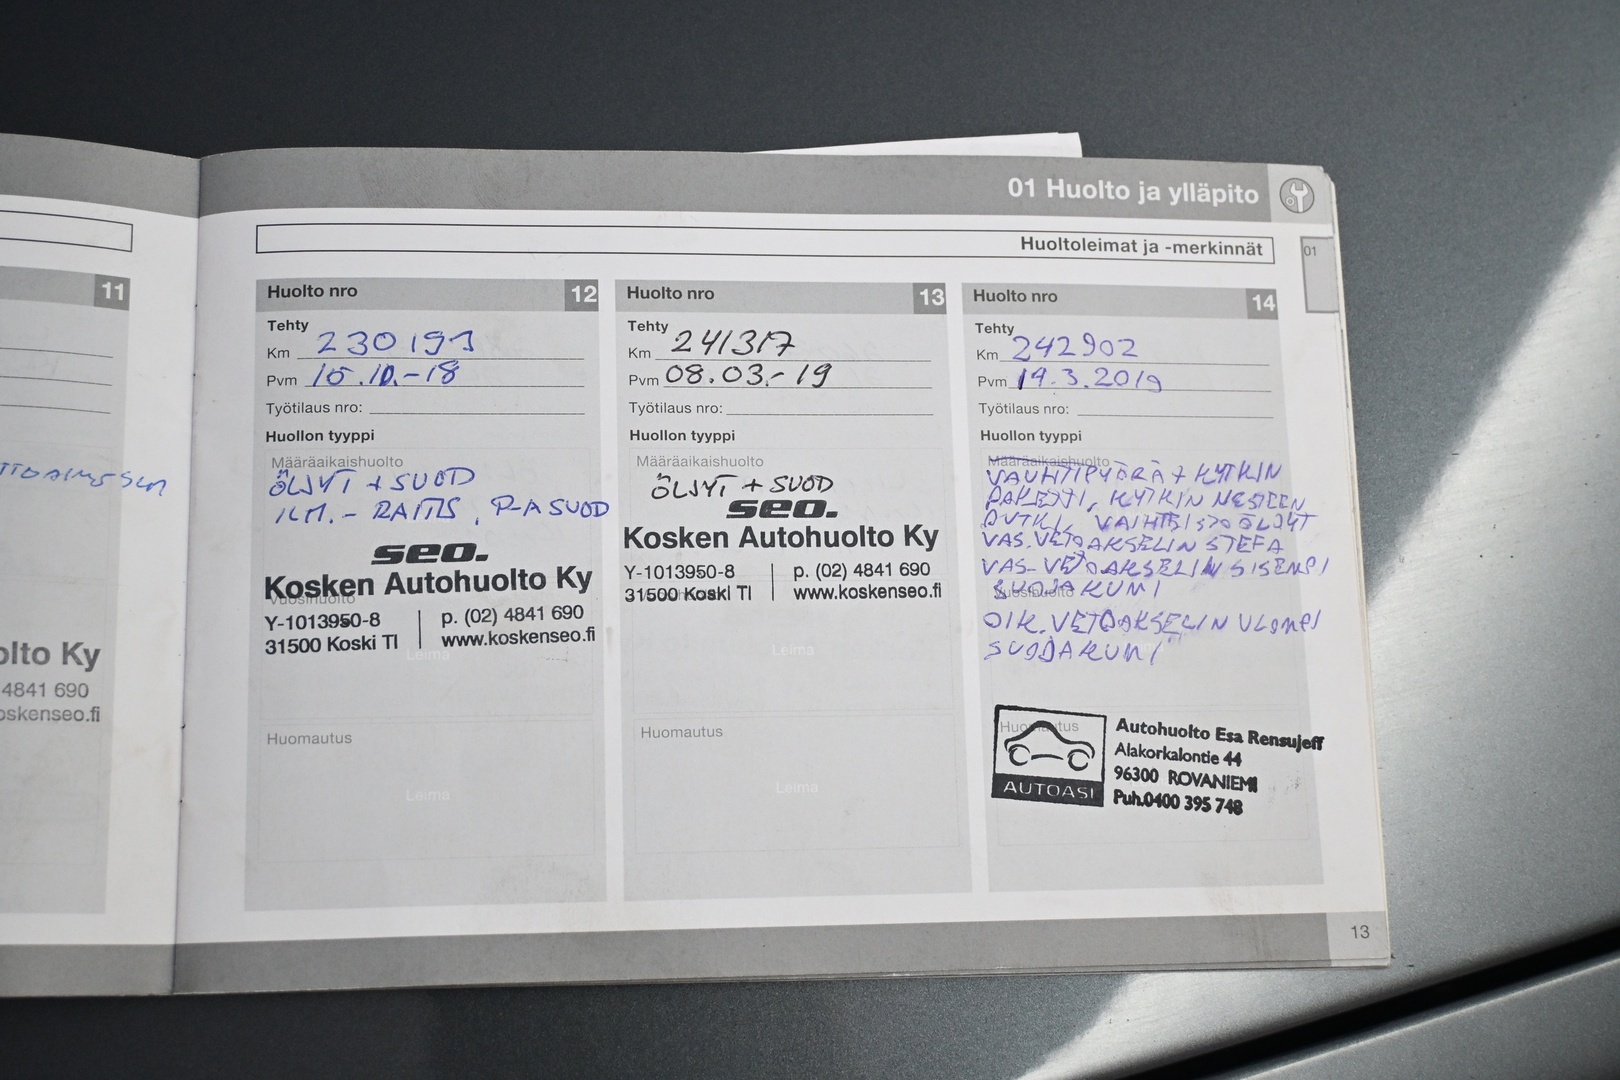 01 Huolto ja ylläpito
Huoltoleimat ja -merkinnät
01
11
olto Ky
4841 690
oskenseo.fi
Huolto nro 12
Tehty
Km 230191
Pvm 15.10.-18
Työtilaus nro:
Huollon tyyppi
Määräaikaishuolto
ÖLJYT + SUOD
ILM.- RAITIS, P-A SUOD
seo.
Kosken Autohuolto Ky
Vuosihuolto
Y-1013950-8 p. (02) 4841 690
31500 Koski Tl www.koskenseo.fi
Leima
Huomautus
Leima
Huolto nro 13
Tehty
Km 241317
Pvm 08.03.-19
Työtilaus nro:
Huollon tyyppi
Määräaikaishuolto
ÖLJYT + SUOD
seo.
Kosken Autohuolto Ky
Y-1013950-8 p. (02) 4841 690
31500 Koski Tl www.koskenseo.fi
Leima
Huomautus
Leima
Huolto nro 14
Tehty
Km 242902
Pvm 19.3.2019
Työtilaus nro:
Huollon tyyppi
Määräaikaishuolto
VAUHTIPYÖRÄ + KYTKIN
PAKETTI, KYTKIN NESTEEN
PUTKI, VAIHTEISTOÖLJYT
VAS.VETOAKSELIN STEFA
VAS-VETOAKSELIN SISEMPI
SUOJAKUMI
Vuosihuolto
OIK.VETOAKSELIN ULOMPI
SUOJAKUMI
Huomautus
AUTOASI
Autohuolto Esa Rensujeff
Alakorkalontie 44
96300 ROVANIEMI
Puh.0400 395 748
13